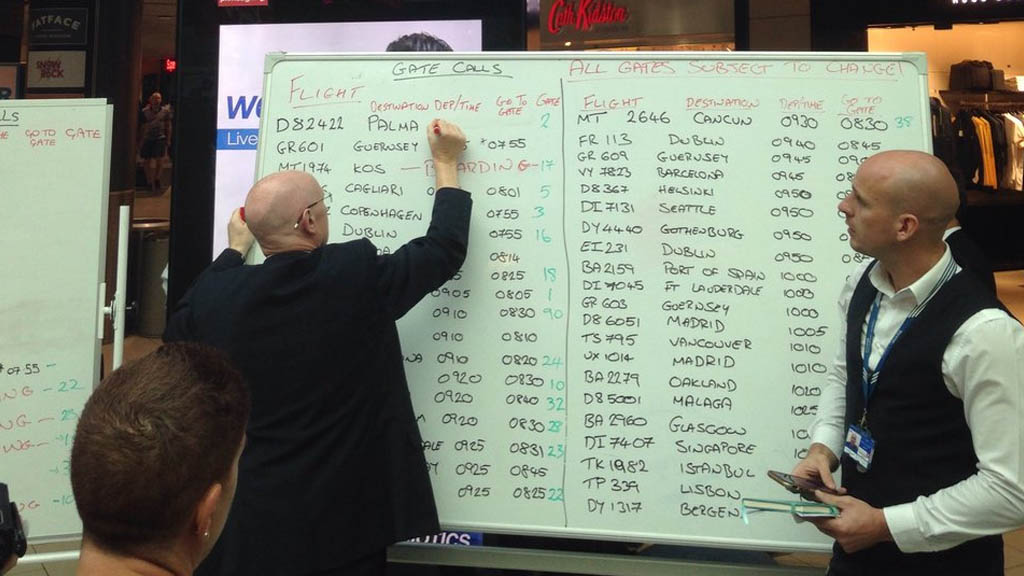 FATFACE
Cath Kidston
GATE CALLS
ALL GATES SUBJECT TO CHANGE!
FLIGHT DESTINATION DEP/TIME GO TO GATE GATE
D82422 PALMA 2
GR601 GUERNSEY *0755
MT1974 KOS — BOARDING — 17
CAGLIARI 0801 5
COPENHAGEN 0755 3
DUBLIN 0755 16
0814
0825 18
0905 0805 1
0910 0830 90
0910 0810
0910 0820 24
0920 0830 10
0920 0840 32
0920 0830 28
0925 0831 23
0925 0845
0925 0825 22
FLIGHT DESTINATION DEP/TIME GO TO GATE
MT 2646 CANCUN 0930 0830 38
FR 113 DUBLIN 0940 0845
GR 609 GUERNSEY 0945
VY 7823 BARCELONA 0945
D8367 HELSINKI 0950
DI7131 SEATTLE 0950
DY4440 GOTHENBURG 0950
EI231 DUBLIN 0950
BA2159 PORT OF SPAIN 1000
DI7045 FT LAUDERDALE 1000
GR 603 GUERNSEY 1000
D86051 MADRID 1005
TS795 VANCOUVER 1010
UX1014 MADRID 1010
BA2279 OAKLAND 1020
D85001 MALAGA 1025
BA2960 GLASGOW
DI7407 SINGAPORE
TK1982 ISTANBUL
TP339 LISBON
DY1317 BERGEN
GO TO GATE GATE
*0755 —
22